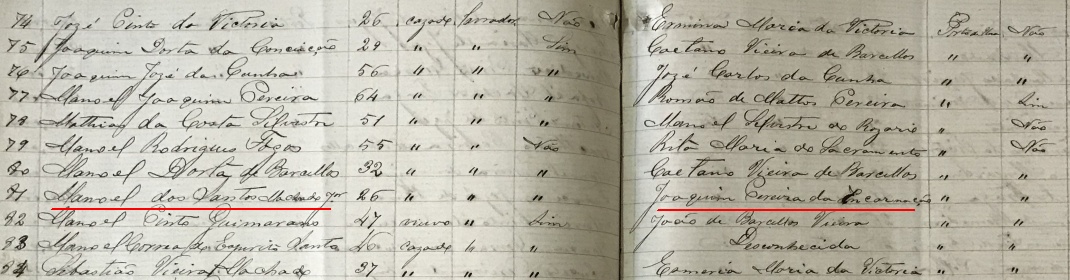 74 José Pinto da Victoria 26 cazado Lavrador Não Ermina Maria da Victoria Não
75 Joaquim Dorta da Conceição 29 " " Sim Caetano Vieira de Barcellos " "
76 Joaquim José da Cunha 56 " " " José Carlos da Cunha " "
77 Manoel Joaquim Pereira 64 " " " Romão de Mattos Pereira " Sim
78 Mathias da Costa Silvestre 51 " " " Manoel Silvestre do Rozario " Não
79 Manoel Rodrigues 55 " " Não Rita Maria do Sacramento " Não
80 Manoel Dorta de Barcellos 32 " " " Caetano Vieira de Barcellos " "
81 Manoel dos Santos Machado Jor 26 " " " Joaquim Pereira da Encarnação " "
82 Manoel Pinto Guimarães 47 viuvo " Sim João de Barcellos Vieira " "
83 Manoel Correa do Espirito Santo 46 cazado " " Desconhecida " "
84 Sebastião Vieira Machado 37 " " " Esmeria Maria da Victoria " "